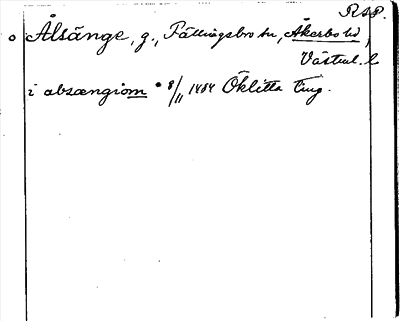 RAP.
Ålsänge, g., Fällingsbro sn, Åkerbo hd,
Västml. l
i alsængiom * 8/11 1484 Öklitta ting.